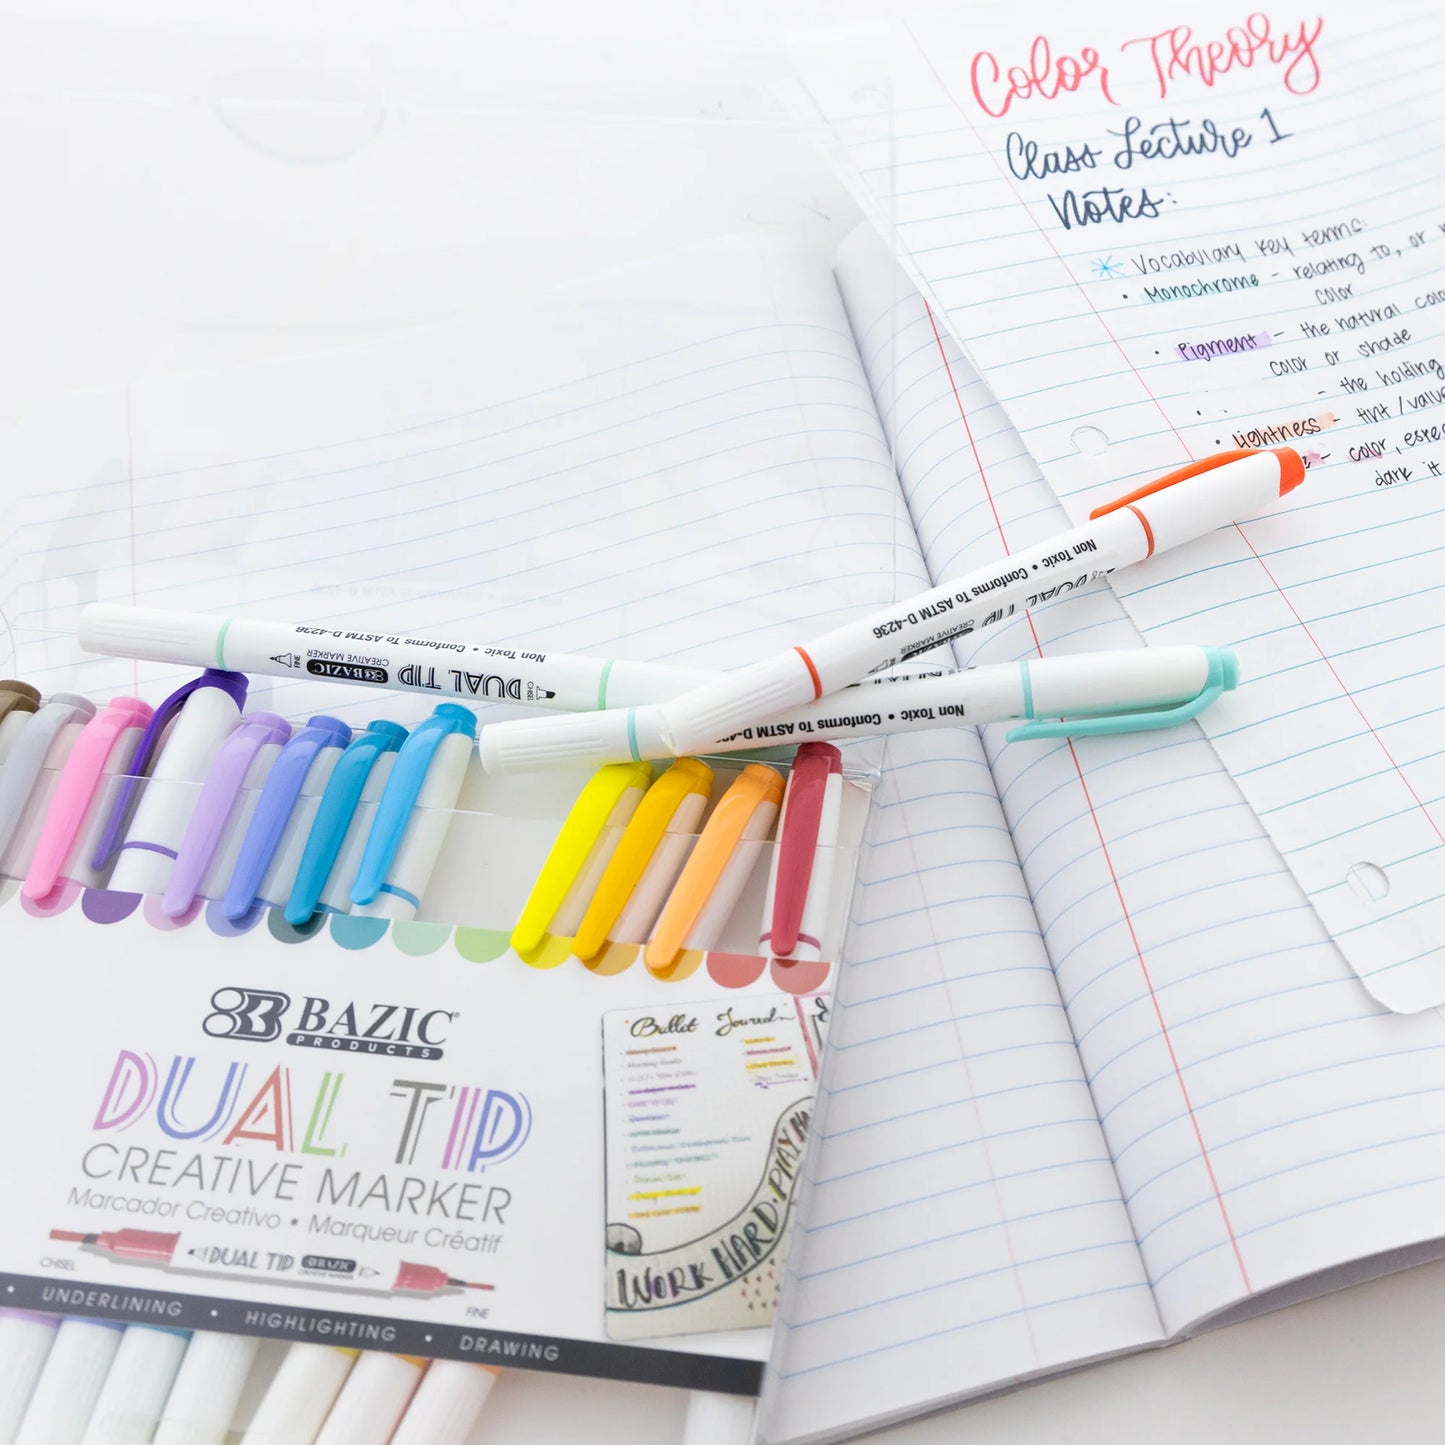 Color Theory
Class Lecture 1
Notes:
Vocabulary key terms:
• Monochrome - relating to, or
color
• Pigment - the natural
color or shade
• - the holding
• Lightness - tint/value
- color,
dark it
Non Toxic • Conforms To ASTM D-4236
DUAL TIP
CREATIVE MARKER
Non Toxic • Conforms To ASTM D-4236
CHISEL DUAL TIP BAZIC FINE
CREATIVE MARKER
Non Toxic • Conforms To ASTM
BAZIC®
PRODUCTS
DUAL TIP
CREATIVE MARKER
Marcador Creativo • Marqueur Créatif
CHISEL
DUAL TIP BAZIC
CREATIVE MARKER
FINE
• UNDERLINING • HIGHLIGHTING • DRAWING
Bullet Journal
WORK HARD • PLAY